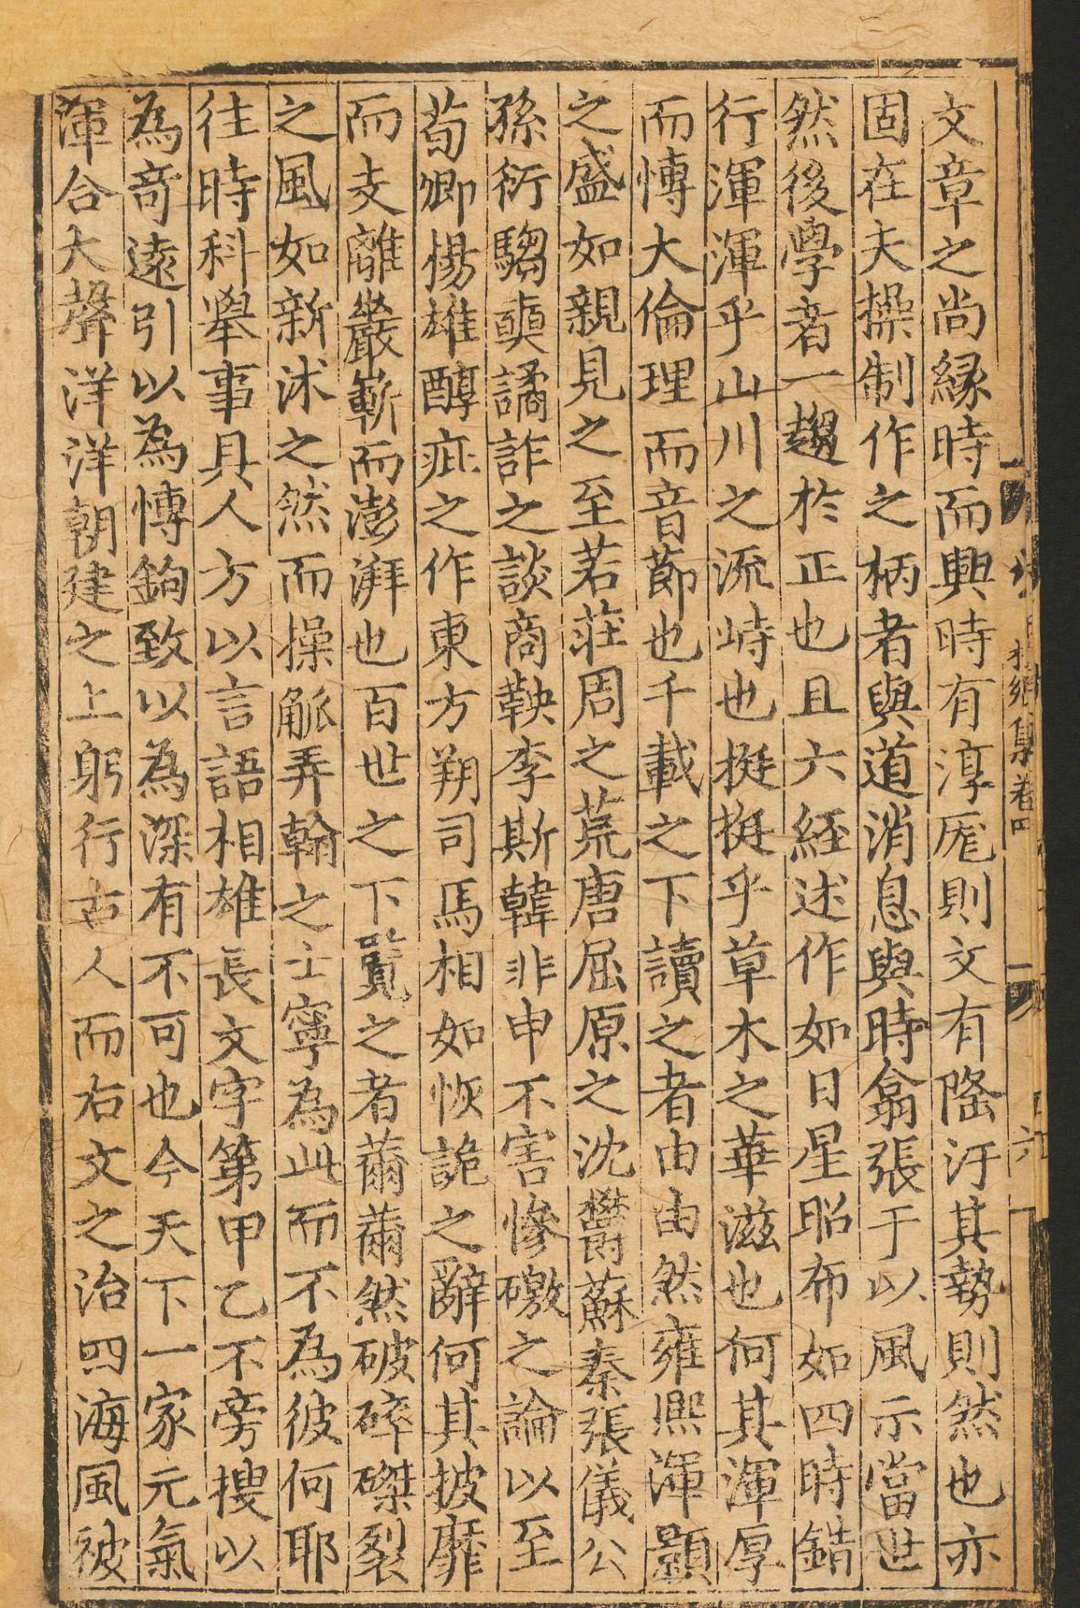 文章之尚緣時而興時有淳厖則文有隆汙其勢則然也亦
固在夫操制作之柄者與道消息與時翕張于以風示當世
然後學者一趨於正也且六經述作如日星昭布如四時錯
行渾渾乎山川之流峙也挺挺乎草木之華滋也何其渾厚
而愽大倫理而音節也千載之下讀之者由由然雍熈渾顥
之盛如親見之至若莊周之荒唐屈原之沈欝蘇秦張儀公
孫衍騶奭譎詐之談商鞅李斯韓非申不害慘礉之論以至
荀卿楊雄醇疵之作東方朔司馬相如恢詭之辭何其披靡
而支離巖嶄而澎湃也百世之下覽之者薾薾然破碎磔裂
之風如新沭之然而操觚弄翰之士寧為此而不為彼何耶
往時科舉事具人方以言語相雄長文字第甲乙不旁搜以
為竒遠引以為愽鉤致以為深有不可也今天下一家元氣
渾合大聲洋洋朝建之上躬行古人而右文之治四海風被
集卷四
六